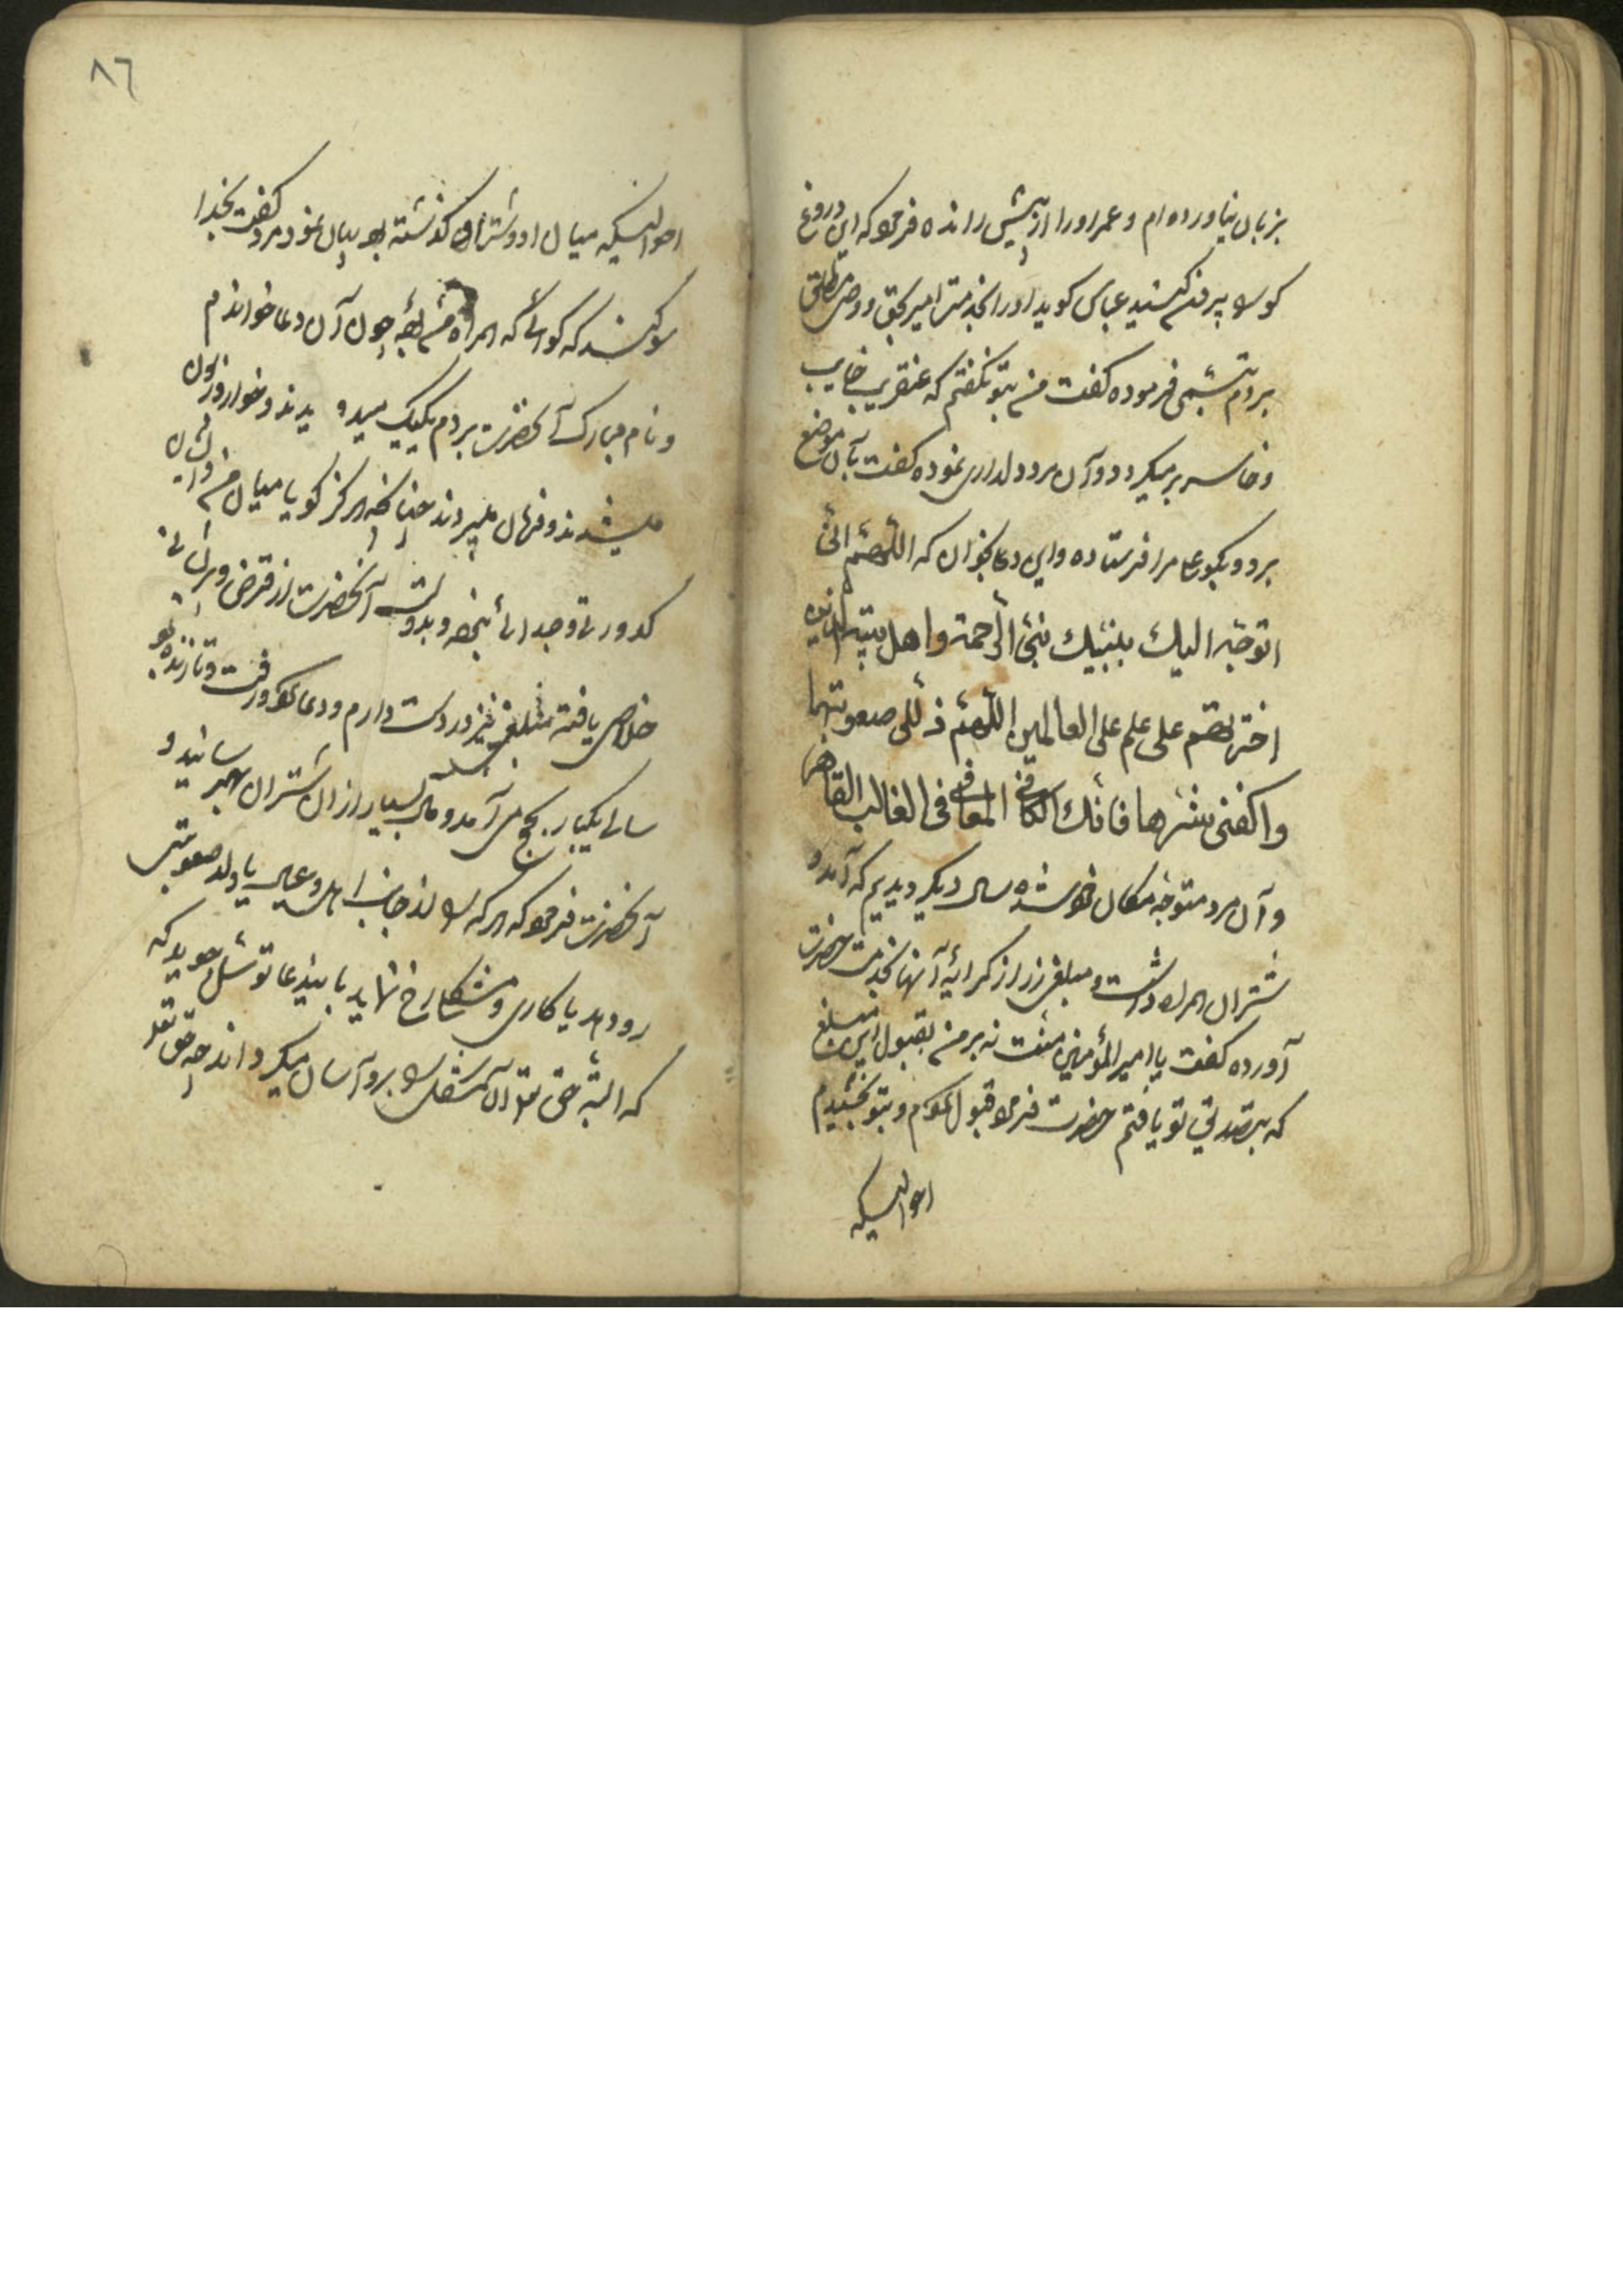 بزبان نیاورده‌ام و عمر او را از پیش رانده فرمود که این دروغ
کو را بیرون کنید عباس کوید او را بخدمت امیر بحق و وصی مطلق
بردم تبسمی فرموده کفت من بتو نکفتم که عنقریب خایب
و خاسر برمیکردد و آن مرد دلداری نموده کفت بآن موضع
برو و بکو عمر مرا فرستاده و این دعا بخوان که اللهم انی
اتوجه الیك بنبیك نبی الرحمة و اهل بیته الذین
اخترتهم علی علم علی العالمین اللهم ذلل لی صعوبتها
واکفنی شرها فانك الکافی المعافی الغالب القاهر
و آن مرد متوجه مکان خود شده سال دیکر دیدیم که آمد و
شتران همراه داشت و مبلغی زر از کرایه آنها بخدمت حضرت
آورده کفت یا امیر المؤمنین منت نه بر من بقبول این مبلغ
که بتصدق تو یافتم حضرت فرمود قبول نمودم و بتو بخشیدم
احوالیکه
۸٦
احوالیکه میان او و شتران کذشته بود بیان نمود مرد کفت بخدا
سوکند که کویا که همراه من بوده چون آن دعا خواندم
و نام مبارک آنحضرت بردم یکیک میدویدند و خوار و زبون
میشدند و فرمان میبردند چنانکه هرکز کویا میان من و ایشان
کدورتی و جدائی نبود و بدولت آنحضرت از قرض و پریشانی
خلاص یافته مبلغی نیز در دست دارم و وداع نموده رفت و تا زنده بود
سالی یکبار بحج می آمد و مال بسیار از آن شتران بهم رسانید و
آنحضرت فرمود که هر که را از جانب اهل و عیال یا ولد صعوبتی
رو دهد یا کاری و مشکلی رخ نماید باینِ دعا توسل جوید که
که البته حق تعالی آن مشکل را برو آسان میکرداند چه حق تعالی